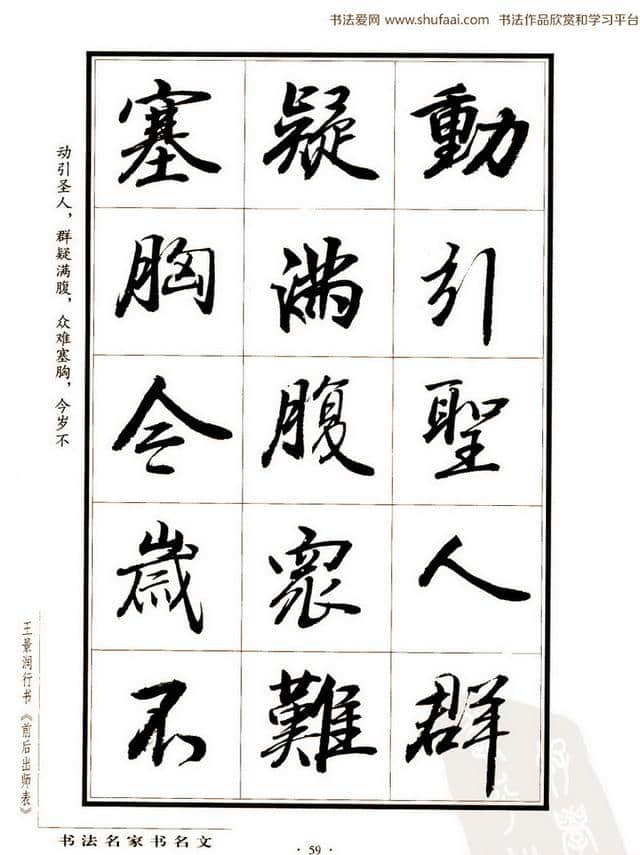 书法爱网 www.shufaai.com 书法作品欣赏和学习平台
動引聖人群
疑满腹衆難
塞胸今歲不
动引圣人，群疑满腹，众难塞胸，今岁不
王景润行书《前后出师表》
书法名家书名文
·59·